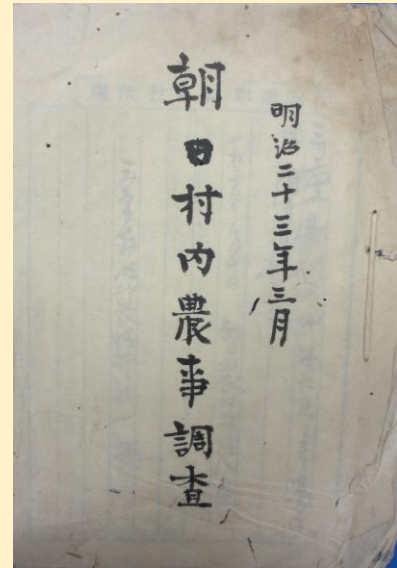 明治二十三年三月
朝日村内農事調査